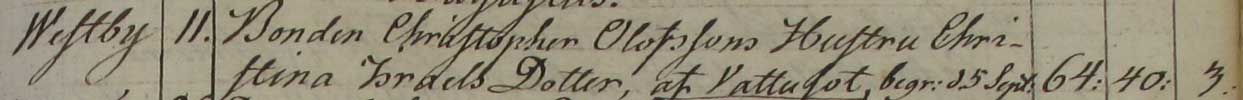 Westby 11. Bonden Christopher Olofssons Hustru Chri-
stina Israels Dotter, af Vattusot, begr: d. 5 Sept: 64: 40: 3.